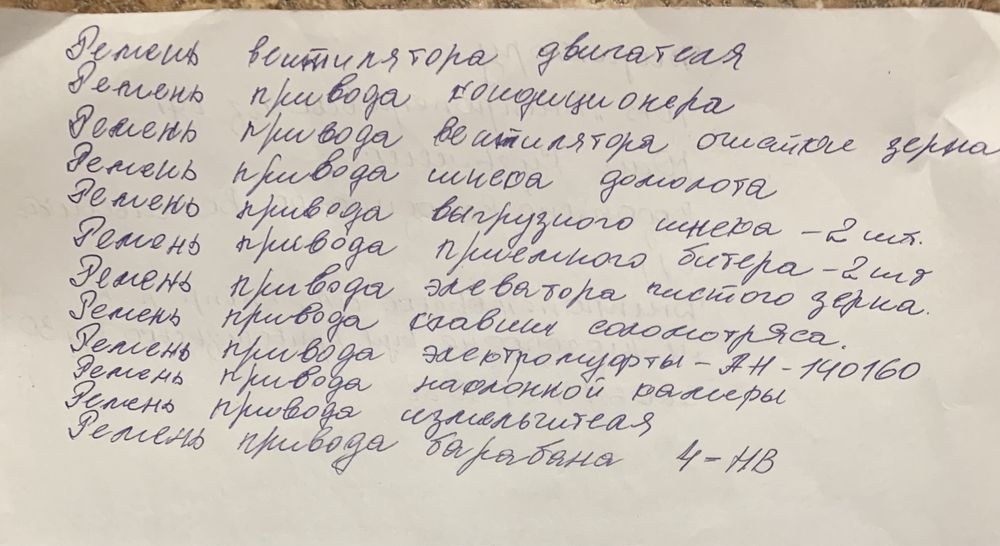 Ремень вентилятора двигателя
Ремень привода кондиционера
Ремень привода вентилятора очистки зерна
Ремень привода шнека домолота
Ремень привода выгрузного шнека - 2 шт.
Ремень привода приемного битера - 2 шт
Ремень привода элеватора чистого зерна.
Ремень привода клавиш соломотряса.
Ремень привода электромуфты - АН - 140160
Ремень привода наклонной камеры
Ремень привода измельчителя
Ремень привода барабана 4 - НВ